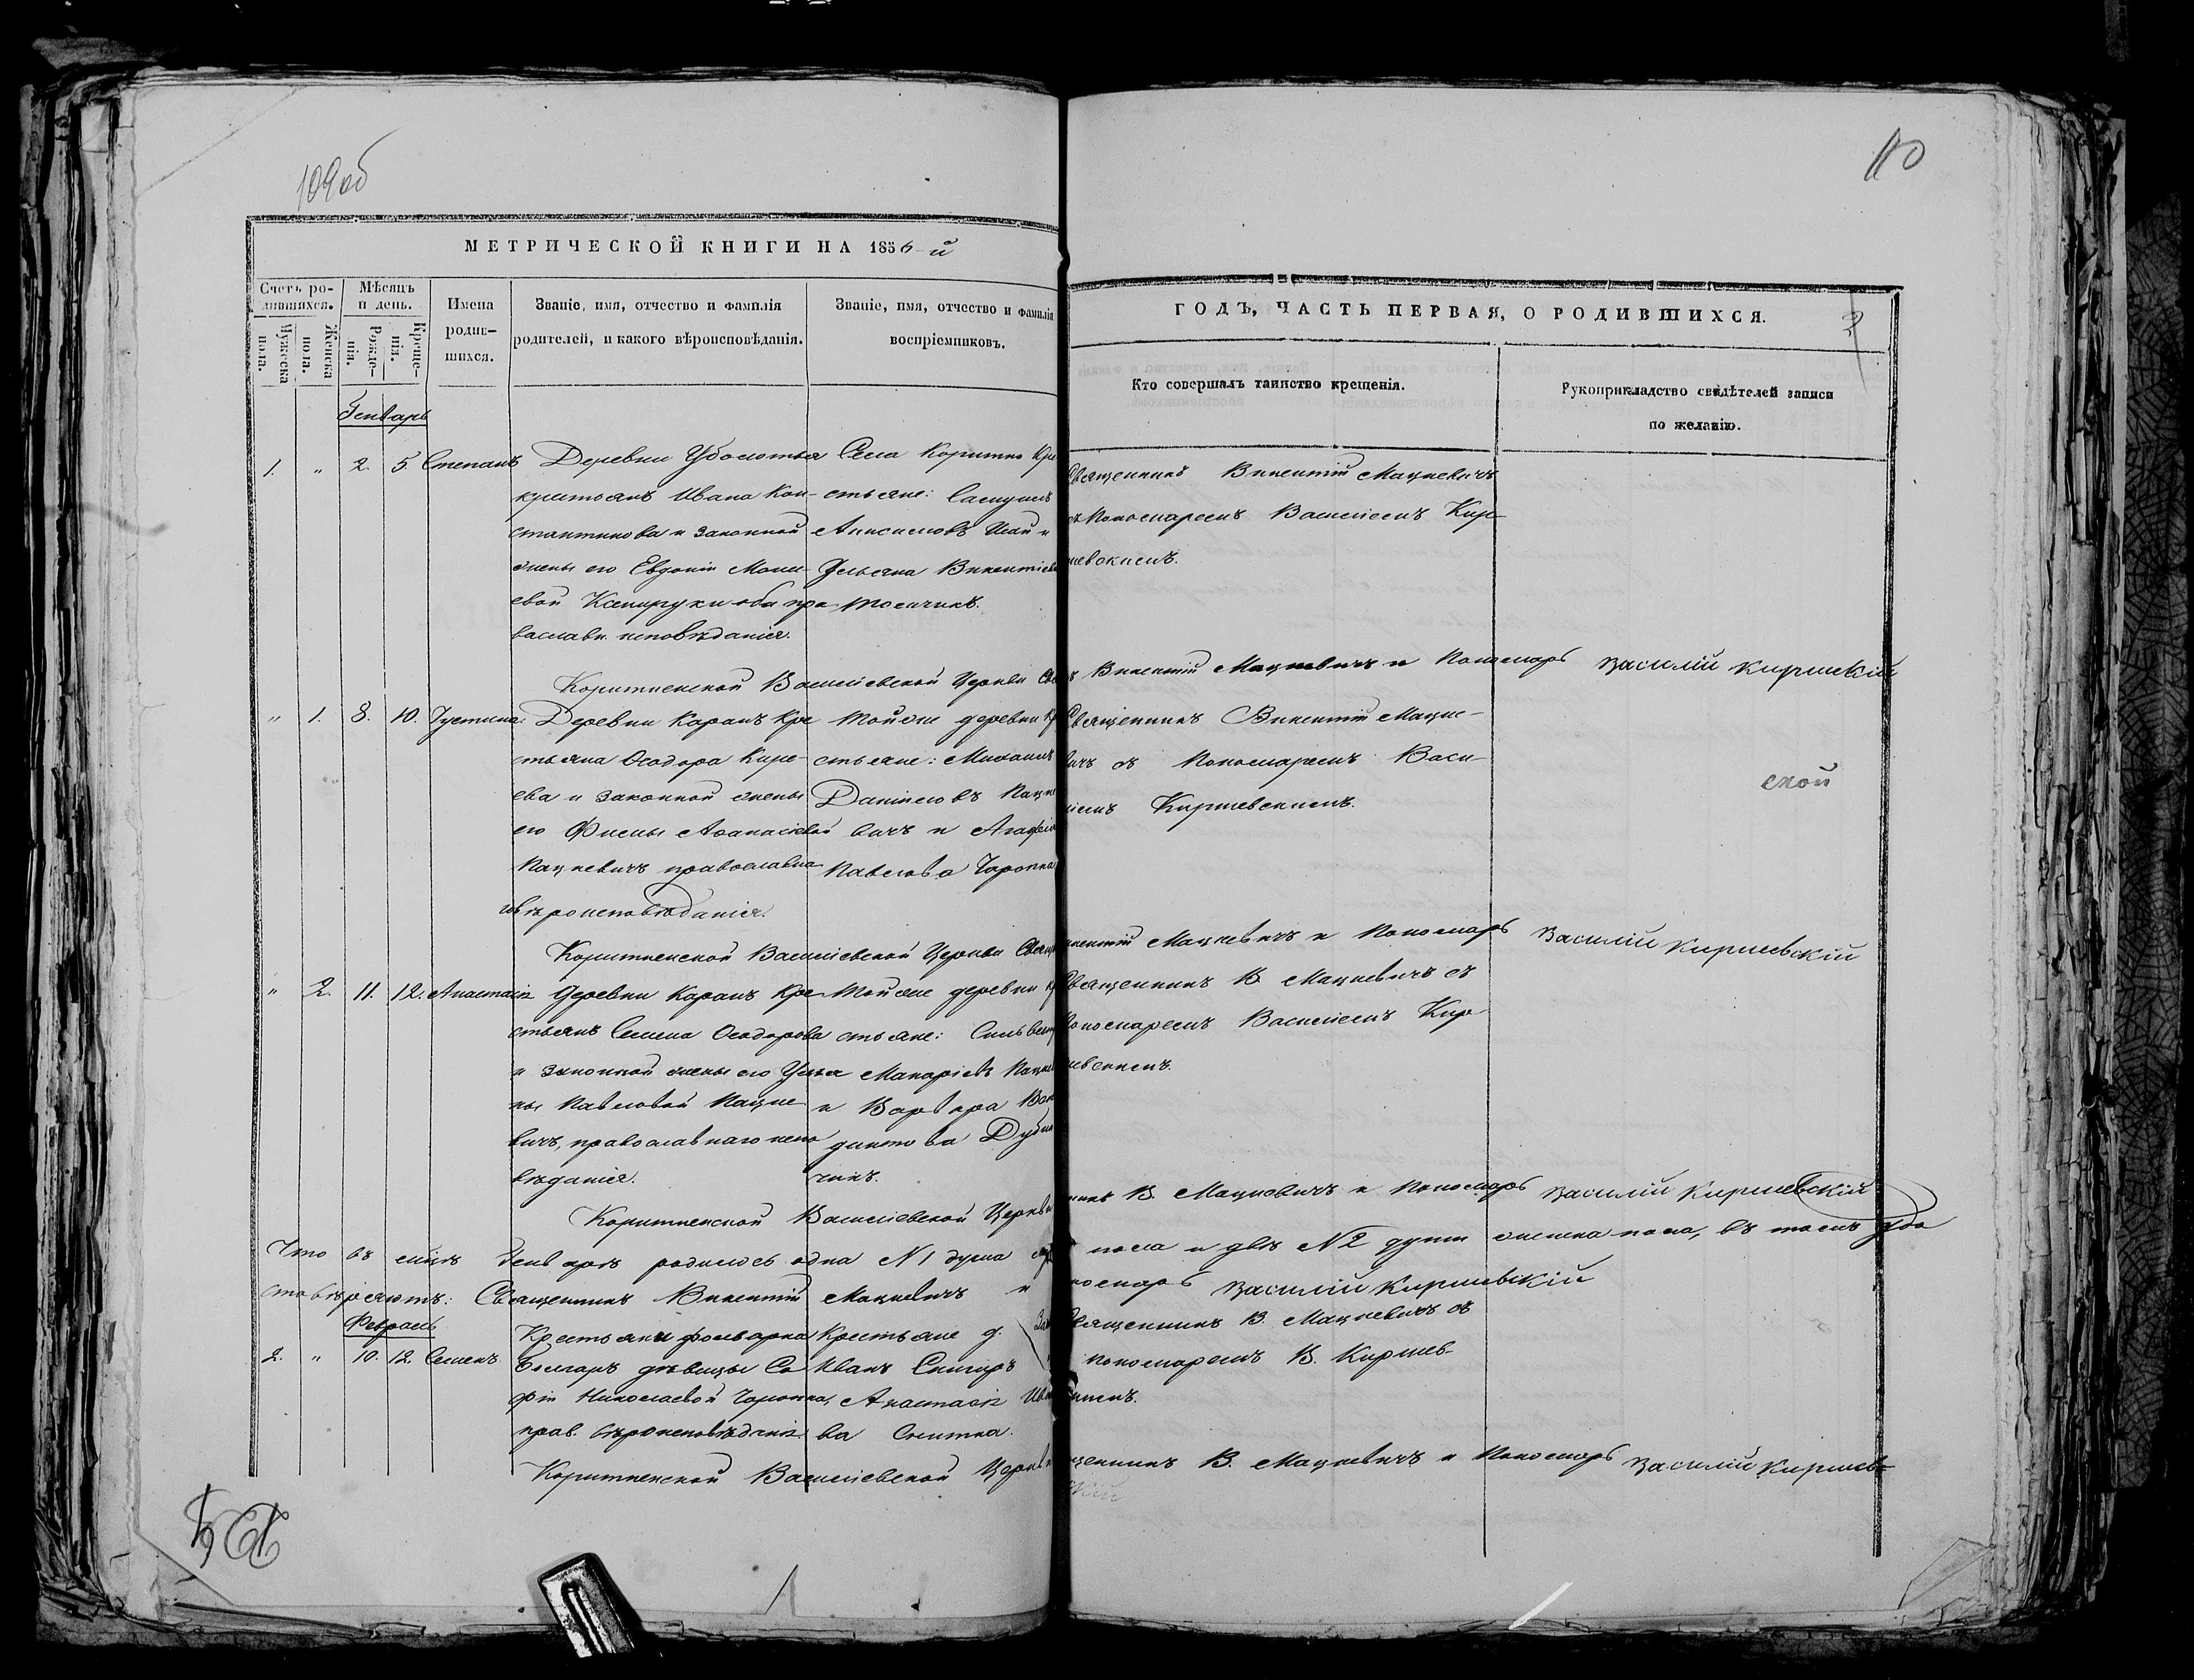 109об
110
МЕТРИЧЕСКОЙ КНИГИ НА 1856-й
ГОДЪ, ЧАСТЬ ПЕРВАЯ, О РОДИВШИХСЯ.
2
Счетъ родившихся.
Мужеска пола.
Женска пола.
Мѣсяцъ и день.
Рожденія.
Крещенія.
Имена родившихся.
Званіе, имя, отчество и фамилія
родителей, и какого вѣроисповѣданія.
Званіе, имя, отчество и фамилія
воспріемниковъ.
Кто совершалъ таинство крещенія.
Рукоприкладство свидѣтелей записи
по желанію.
Генварь
1. " 2. 5. Степанъ
Деревни Уболотья
крестьянъ Ивана Кон-
стантинова и законной
жены его Евдокіи
евой оба пра
вославн. исповѣданія.
Села Коритно Кре
стьяне:
Анисимовъ и
Ульяна Викентіева
Священникъ Викентій Мацкевичъ
съ Пономаремъ Василіемъ Кир-
шевскимъ.
Коритненской Василіевской Церкви Викентій Мацкевичъ и Пономарь Василій Киршевскій
" 1. 8. 10. Іустина
Деревни Каранъ Кре
стьяна Ѳеодора Кире-
ева и законной жены
его Аѳанасіевой
Пацкевичъ православна
го вѣроисповѣданія.
Той же деревни кр
стьяне: Михаилъ
Даніиловъ Пацке
вичъ и Агафія
Павлова Чаропка
Священникъ Викентій Мацке-
вичъ съ Пономаремъ Васи-
ліемъ Киршевскимъ.
ской
Коритненской Василіевской Церкви Викентій Мацкевичъ и Пономарь Василій Киршевскій
" 2. 11. 12. Анастасія
Деревни Каранъ Кре
стьянъ Семена Ѳеодорова
и законной жены его Улья
ны Павловой Пацке
вичъ, православнаго испо
вѣданія.
Той же деревни кр
стьяне:
Макаріевъ
и Варвара
Священникъ В. Мацкевичъ съ
Пономаремъ Василіемъ Кир-
шевскимъ.
Коритненской Василіевской Церкви В. Мацкевичъ и Пономарь Василій Киршевскій
Что въ мцѣ Генварѣ родилось одна №1 душа пола и двѣ №2 душъ женска пола, въ томъ удо
стовѣряютъ: Священникъ Викентій Мацкевичъ и Пономарь Василій Киршевскій
Февраль
2. " 10. 12. Семенъ
фольварка
дѣвицы Со
фіи Николаевой Чаропка,
прав. вѣроисповѣданія.
Крестьяне д.
Иванъ
Анастасія
ва
Священникъ В. Мацкевичъ съ
пономаремъ В. Киршев-
скимъ.
Коритненской Василіевской Церкви В. Мацкевичъ и Пономарь Василій Киршев-
скій